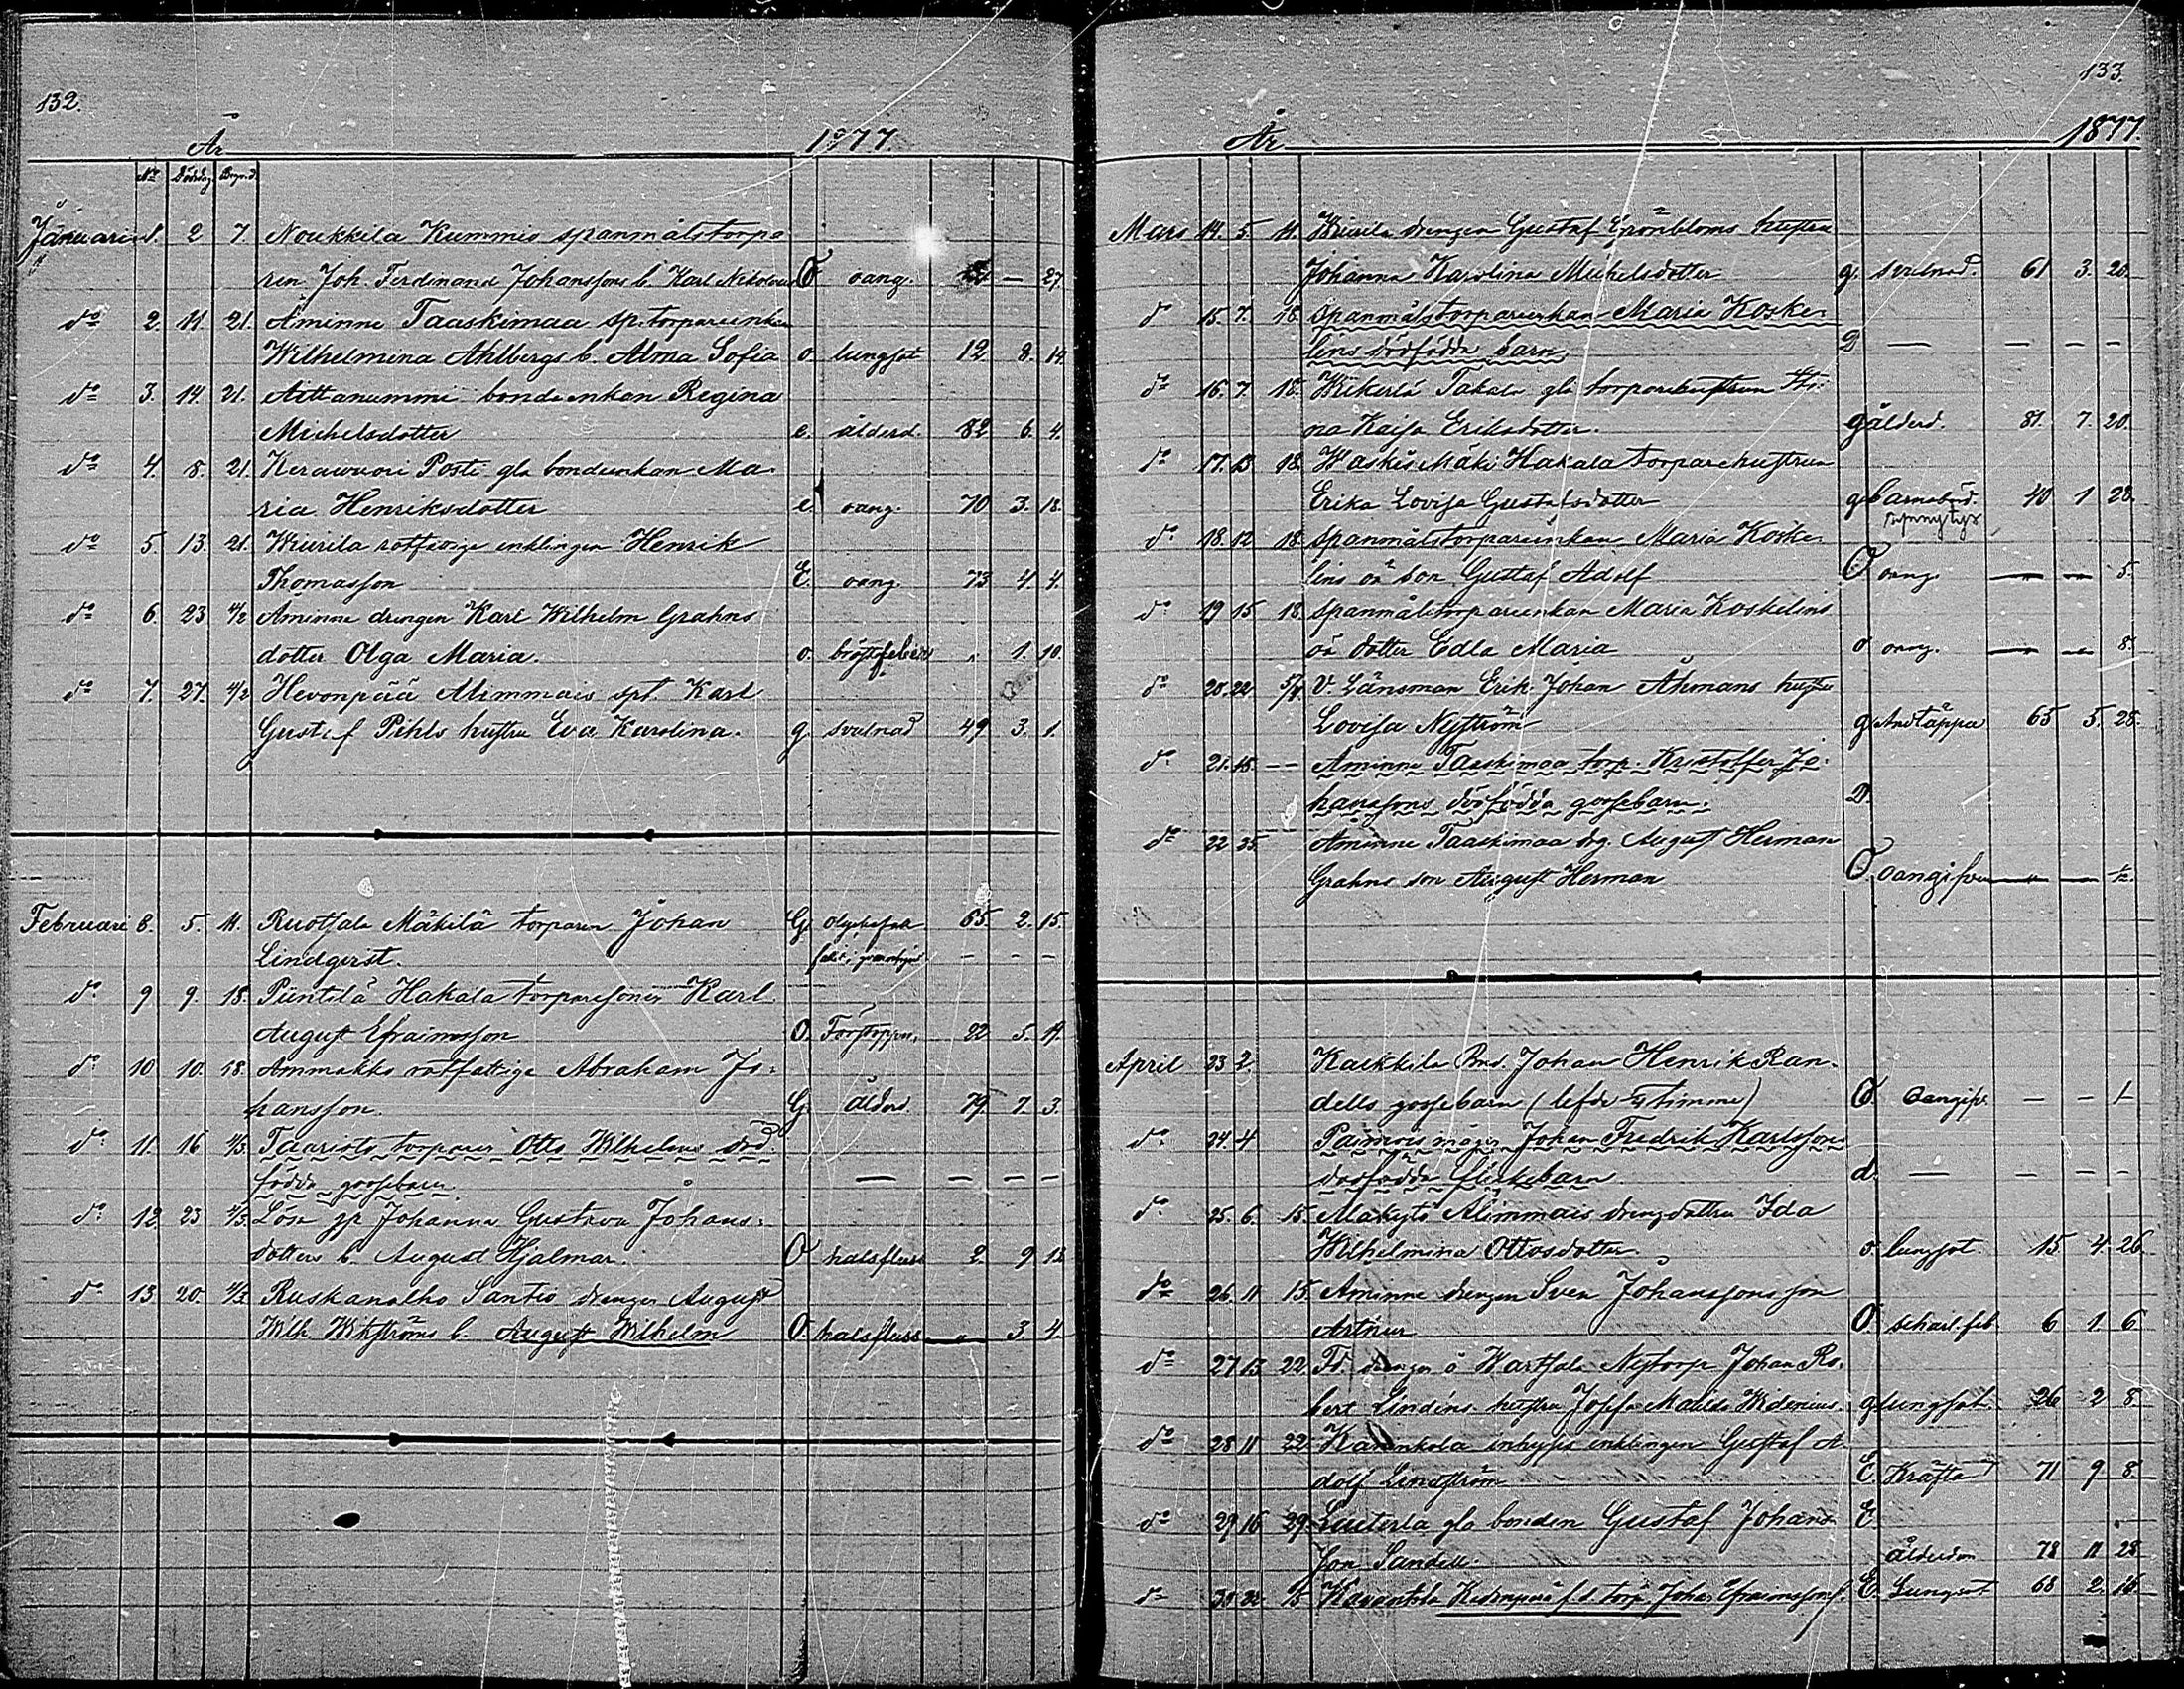 132.
År 1877
No Dödsdag Begr.d.
Januari 1. 2 7. Noukkila Kummis spanmålstorpa
ren Joh. Ferdinand Johanssons b. Karl Nikolaus O oang. — 27
do 2. 11. 21. Åminne Taaskimaa sp. torpareenkan
Wilhelmina Ahlbergs b. Alma Sofia o. lungsot 12 8. 14.
do 3. 14. 21. Aittanummi bondeenkan Regina
Michelsdotter e. ålderd. 82 6. 4.
do 4. 8. 21. Kerawuori Posti gla bondeenkan Ma-
ria Henriksdotter e. oang. 70 3. 18.
do 5. 13. 21. Wiurila rotfattige enklingen Henrik
Thomasson E. oang. 73 4. 4.
do 6. 23 4/2 Åminne drengen Karl Wilhelm Grahns
dotter Olga Maria. o. bröstfeber „ 1. 10.
do 7. 27. 4/2 Hevonpää Alimmais spt. Karl
Gustaf Pihls hustru Eva Karolina. g. svulnad 49 3. 1.
Februari 8. 5. 11. Ruotsala Mäkilä torparen Johan G. olyckesfall 65. 2. 15.
Lindqvist. – – –
do 9 9. 18. Püntilä Hakala torparesonen Karl
August Efraimsson O. Förstoppn. 22 5. 4.
do 10 10. 18. Ammakko rotfattige Abraham Jo-
hansson. G. Ålderd. 79. 7. 3.
do 11. 16 4/3. Taaristo torparen Otto Wilhelms död-
födda gossebarn. — — — —
do 12 23 4/3. Lösa qp Johanna Gustava Johans-
dotters b. August Hjalmar. O halsfluss 2. 9 12
do 13 20. 4/3 Ruskanolho Santio drengen August
Wilh. Wikströms b. August Wilhelm O. halsfluss „ 3. 4.
133.
År 1877.
Mars 14. 5. 11. Wiurila drengen Gustaf Grönbloms hustru
Johanna Karolina Michelsdotter g. svulnad. 61 3. 20.
do 15. 7. 18. Spanmålstorpareenkan Maria Koske-
lins dödfödda barn D — — — —
do 16. 7. 18. Wiikerlä Takala gla torparehustrun Sti-
na Kaisa Eriksdotter. g ålderd. 81. 7. 20.
do 17. 13 18. Waskis Mäki Hakala torparehustrun
Erika Lovisa Gustafsdotter g barnsbörd 40 1 28.
do 18. 12 18. Spanmålstorpareenkan Maria Koske-
lins oä son Gustaf Adolf O oang. — — 5.
do 19 15 18. Spanmålstorpareenkan Maria Koskelins
oä dotter Edla Maria o oang. — — 8.
do 20. 22 5/4 V. Länsman Erik Johan Åhmans hustru
Lovisa Nyström g Andtäppa 65 5. 28.
do 21. 18. — Åminne Taaskimaa torp. Kristoffer Jo-
hanssons dödfödda gossebarn. D.
do 22 25. Åminne Taaskimaa drg. August Herman
Grahns son August Herman O oangifven — — ½.
April 23 2. Kaukkila Bnd. Johan Henrik Ran-
dells gossebarn (lefde ½ timme) O. Oangifv. — — —
do 24. 4 Paimois mågen Johan Fredrik Karlssons
dödfödda flickebarn d. — — — —
do 25. 6. 15. Mäkytö Alimmais drengdottern Ida
Wilhelmina Ottosdotter. o. lungsot. 15 4. 26.
do 26. 11 15. Åminne drengen Sven Johanssons son
Artur O. scharl. feb. 6 1. 6
do 27 13 22. Fd. drengen å Wartsala Nytorp Johan Ro-
bert Lindéns hustru Josefa Matilda Widenius. g lungsot. 26 2 8.
do 28 11 22 Karankola inhyses enklingen Gustaf A
dolf Lindström E. Kräfta 71 9 8.
do 29 16 29. Luuterla gla bonden Gustaf Johans- E
son Sandell. ålderdom 78 11 28
do 30 22. Karankola f.d. torp. Johan Efraimsson E. Lungsot. 68 2. 16